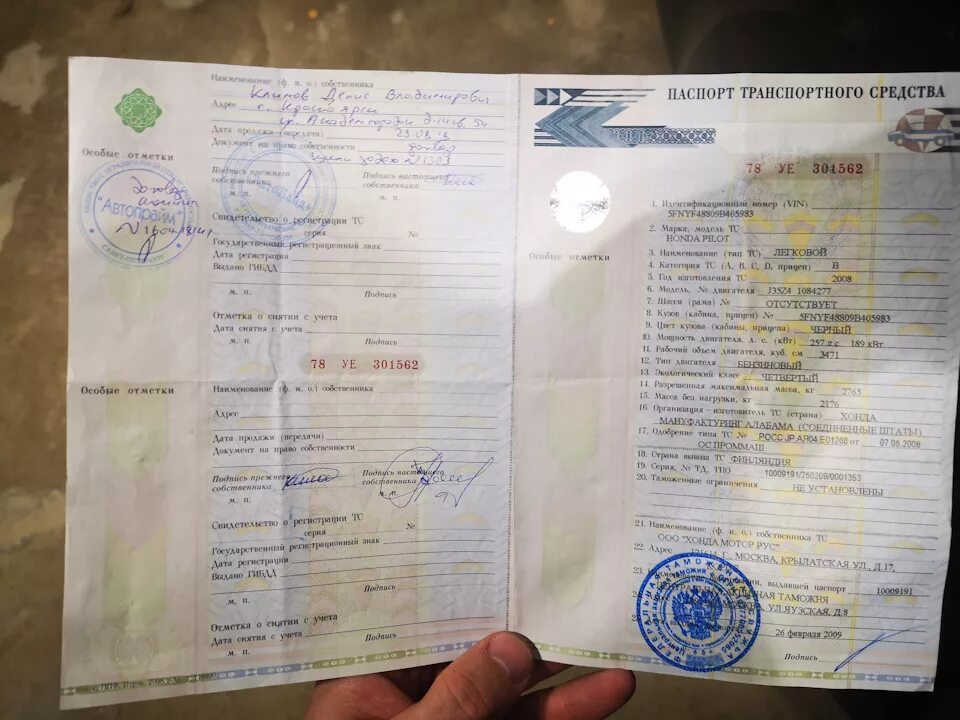 Наименование (ф. и. о.) собственника
Климов Денис Владимирович
Адрес г. Красноярск
ул. Академгородок д-14 кв 54
Дата продажи (передачи)
Документ на право собственности договор
купли продажи N 1303
Особые отметки
Подпись прежнего собственника
Подпись настоящего собственника
м. п.
м. п.
"Автопрайм"
САНКТ-ПЕТЕРБУРГ
Свидетельство о регистрации ТС
серия №
Государственный регистрационный знак
Дата регистрации
Выдано ГИБДД
м. п. Подпись
Отметка о снятии с учета
Дата снятия с учета
м. п. Подпись
78 УЕ 301562
Особые отметки
Наименование (ф. и. о.) собственника
Адрес
Дата продажи (передачи)
Документ на право собственности
Подпись прежнего собственника
Подпись настоящего собственника
м. п.
м. п.
Свидетельство о регистрации ТС
серия №
Государственный регистрационный знак
Дата регистрации
Выдано ГИБДД
м. п. Подпись
Отметка о снятии с учета
Дата снятия с учета
м. п. Подпись
ПАСПОРТ ТРАНСПОРТНОГО СРЕДСТВА
78 УЕ 301562
Особые отметки
1. Идентификационный номер (VIN)
5FNYF48809B405983
2. Марка, модель ТС
HONDA PILOT
3. Наименование (тип ТС) ЛЕГКОВОЙ
4. Категория ТС (А, В, С, D, прицеп) B
5. Год изготовления ТС 2008
6. Модель, № двигателя J35Z4 1084277
7. Шасси (рама) № ОТСУТСТВУЕТ
8. Кузов (кабина, прицеп) № 5FNYF48809B405983
9. Цвет кузова (кабины, прицепа) ЧЕРНЫЙ
10. Мощность двигателя, л. с. (кВт) 257 л.с. 189 кВт
11. Рабочий объем двигателя, куб. см 3471
12. Тип двигателя БЕНЗИНОВЫЙ
13. Экологический класс ЧЕТВЕРТЫЙ
14. Разрешенная максимальная масса, кг 2765
15. Масса без нагрузки, кг 2176
16. Организация-изготовитель ТС (страна) ХОНДА
МАНУФАКТУРИНГ АЛАБАМА (СОЕДИНЕННЫЕ ШТАТЫ)
17. Одобрение типа ТС № РОСС JP.АЯ04.Е01268 от 07.08.2008
ОС ПРОММАШ
18. Страна вывоза ТС ФИНЛЯНДИЯ
19. Серия, № ТД, ТПО 10009191/260209/0001353
20. Таможенные ограничения НЕ УСТАНОВЛЕНЫ
21. Наименование (ф. и. о.) собственника ТС
ООО "ХОНДА МОТОР РУС"
22. Адрес Г., МОСКВА, КРЫЛАТСКАЯ УЛ., Д.17,
23. выдавшей паспорт 10009191
АКЦИЗНАЯ ТАМОЖНЯ
УЛ.ЯУЗСКАЯ, Д.8
26 февраля 2009
Подпись